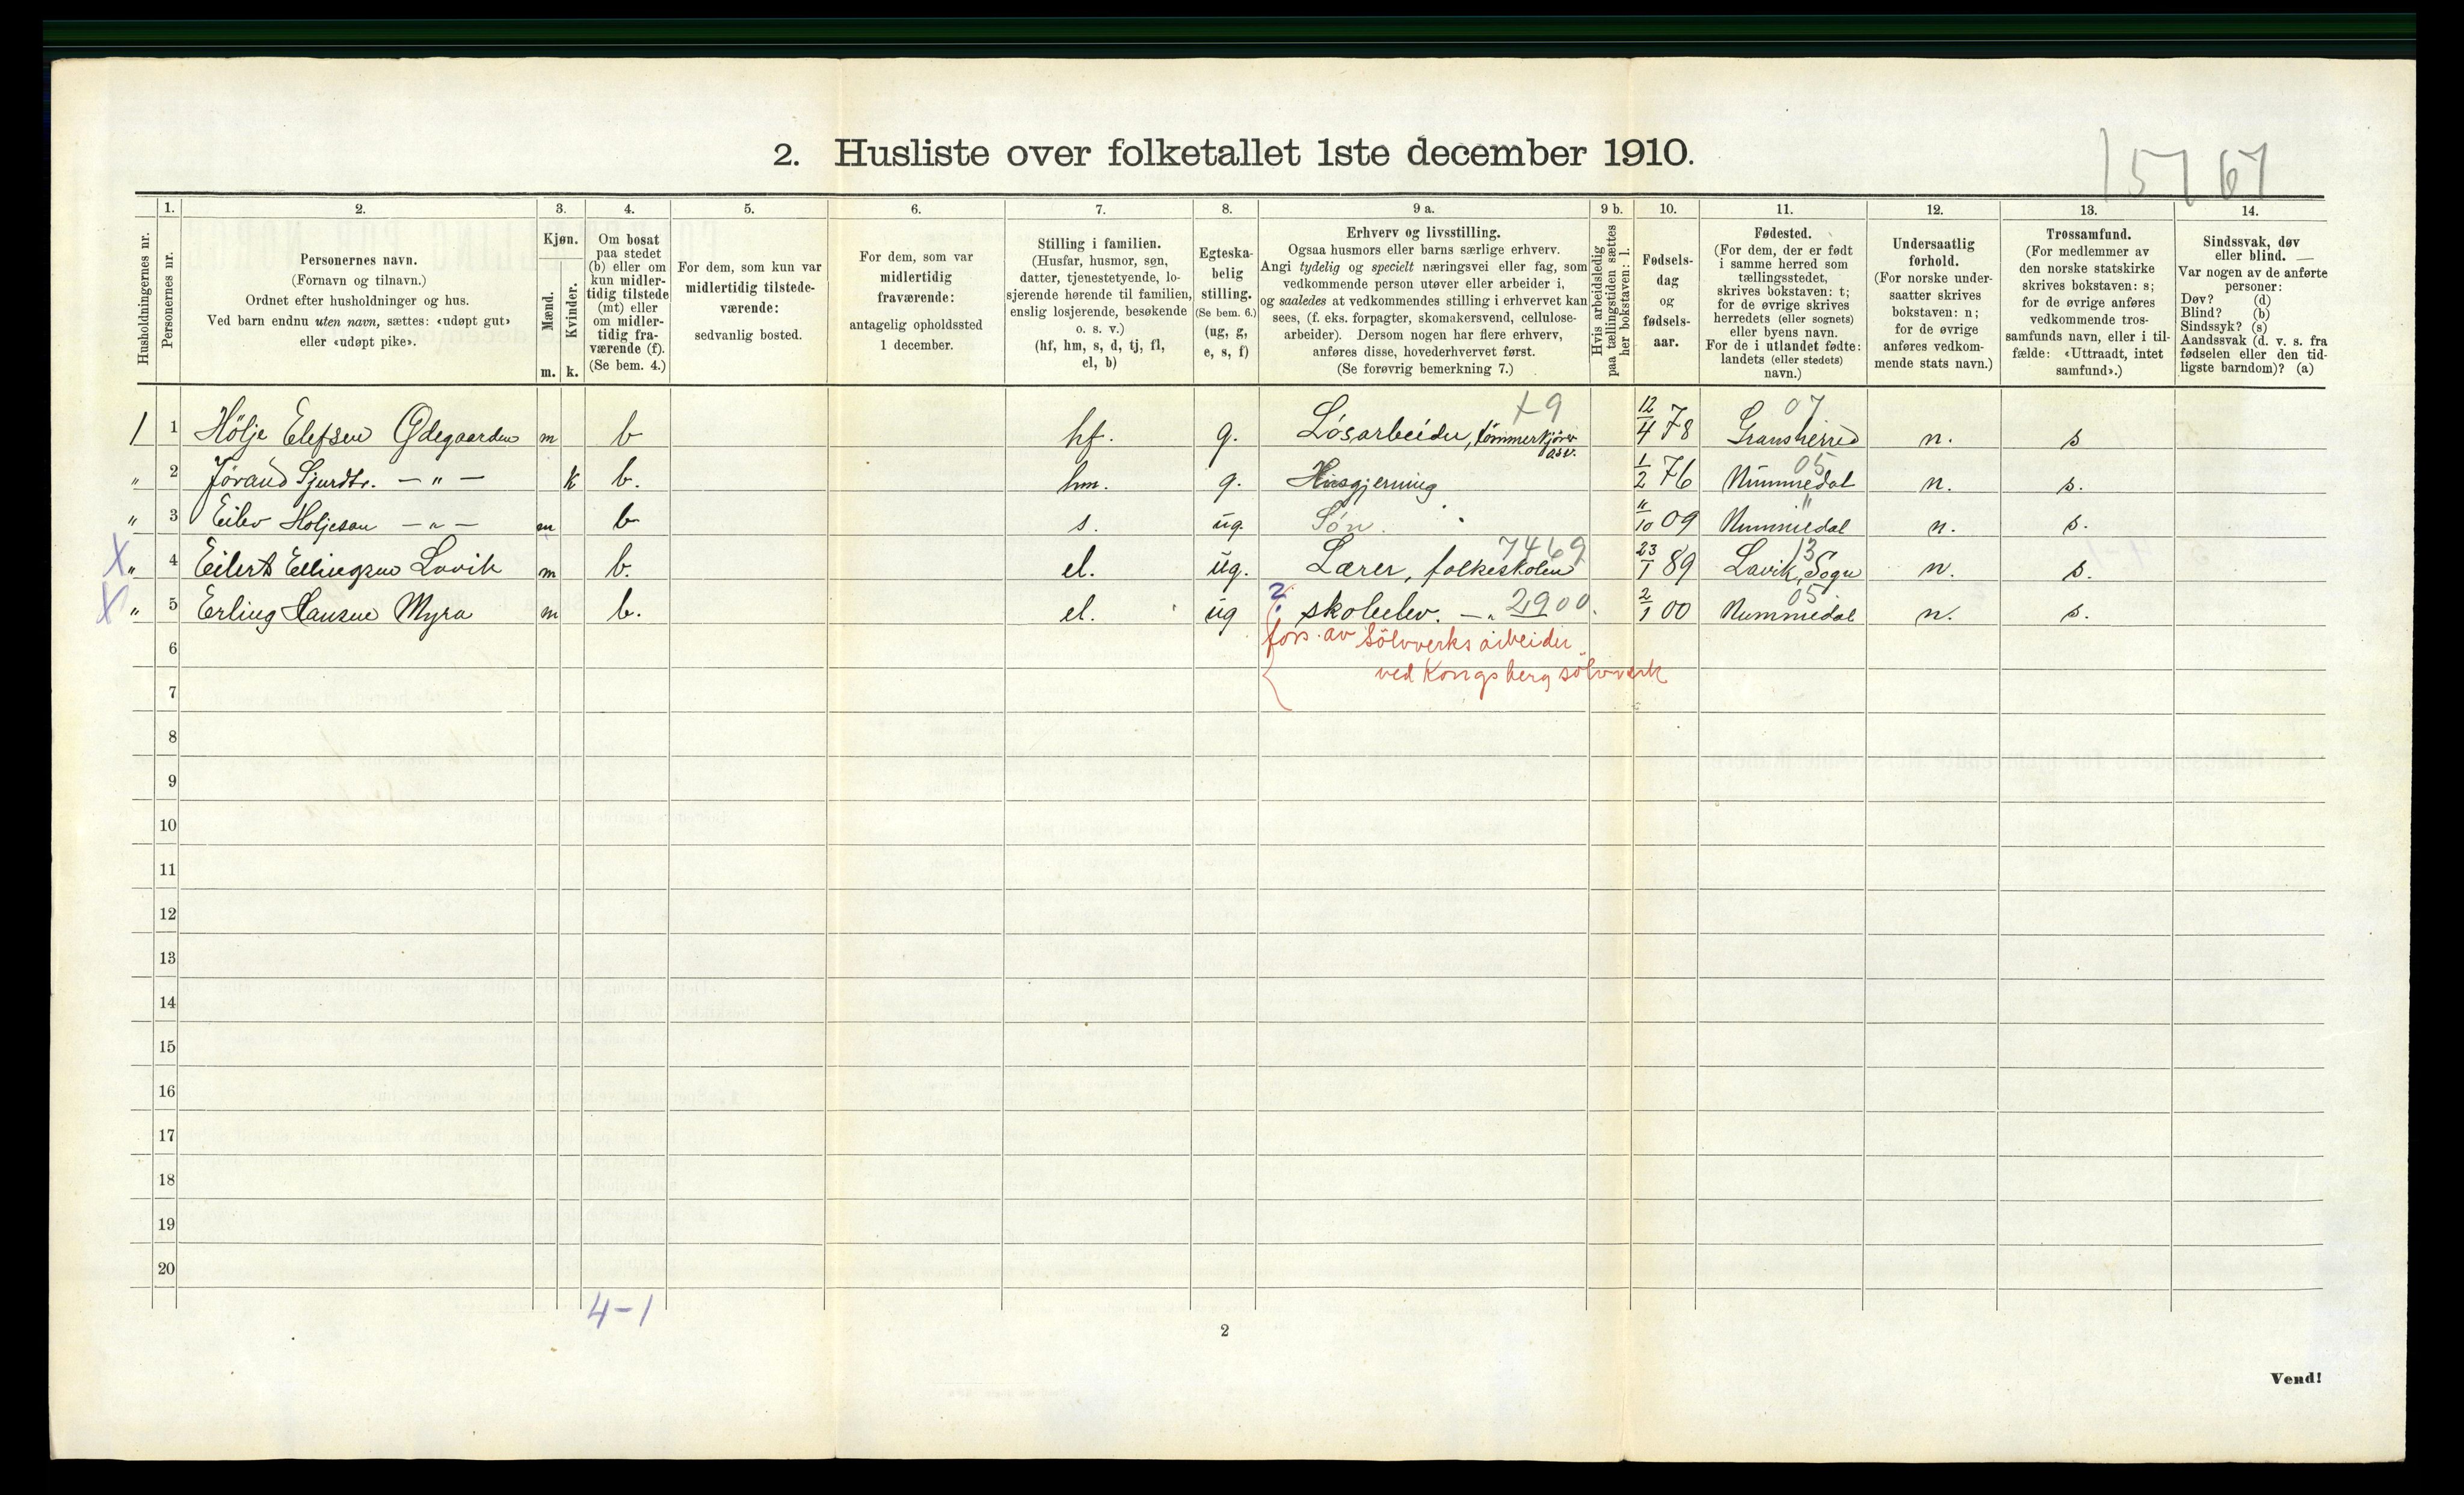 2. Husliste over folketallet 1ste december 1910.
15767
Husholdningernes nr.
1.
Personernes nr.
2.
Personernes navn.
(Fornavn og tilnavn.)
Ordnet efter husholdninger og hus.
Ved barn endnu uten navn, sættes: «udøpt gut»
eller «udøpt pike».
3.
Kjøn.
Mænd.
Kvinder.
m. k.
4.
Om bosat
paa stedet
(b) eller om
kun midler-
tidig tilstede
(mt) eller
om midler-
tidig fra-
værende (f).
(Se bem. 4.)
5.
For dem, som kun var
midlertidig tilstede-
værende:
sedvanlig bosted.
6.
For dem, som var
midlertidig
fraværende:
antagelig opholdssted
1 december.
7.
Stilling i familien.
(Husfar, husmor, søn,
datter, tjenestetyende, lo-
sjerende hørende til familien,
enslig losjerende, besøkende
o. s. v.)
(hf, hm, s, d, tj, fl,
el, b)
8.
Egteska-
belig
stilling.
(Se bem. 6.)
(ug, g,
e, s, f)
9 a.
Erhverv og livsstilling.
Ogsaa husmors eller barns særlige erhverv.
Angi tydelig og specielt næringsvei eller fag, som
vedkommende person utøver eller arbeider i,
og saaledes at vedkommendes stilling i erhvervet kan
sees, (f. eks. forpagter, skomakersvend, cellulose-
arbeider). Dersom nogen har flere erhverv,
anføres disse, hovederhvervet først.
(Se forøvrig bemerkning 7.)
9 b.
Hvis arbeidsledig
paa tællingstiden sættes
her bokstaven: l.
10.
Fødsels-
dag
og
fødsels-
aar.
11.
Fødested.
(For dem, der er født
i samme herred som
tællingsstedet,
skrives bokstaven: t;
for de øvrige skrives
herredets (eller sognets)
eller byens navn.
For de i utlandet fødte:
landets (eller stedets)
navn.)
12.
Undersaatlig
forhold.
(For norske under-
saatter skrives
bokstaven: n;
for de øvrige
anføres vedkom-
mende stats navn.)
13.
Trossamfund.
(For medlemmer av
den norske statskirke
skrives bokstaven: s;
for de øvrige anføres
vedkommende tros-
samfunds navn, eller i til-
fælde: «Uttraadt, intet
samfund».)
14.
Sindssvak, døv
eller blind.
Var nogen av de anførte
personer:
Døv? (d)
Blind? (b)
Sindssyk? (s)
Aandssvak (d. v. s. fra
fødselen eller den tid-
ligste barndom)? (a)
1 1 Hölje Elefsen Ødegaarden m b hf. g. Løsarbeider, tömmerkjörer osv. 12/4 78 Gransherred 07 n. s
" 2 Jörand Sjurdtr. — " — k b. hm. g. Husgjerning 1/2 76 Nummedal 05 n. s.
" 3 Eilev Holjesøn — " — m b s. ug. Søn. 11/10 09 Nummedal " n. s.
X " 4 Eilert Ellingsen Lavik m b. el. ug. Lærer, folkeskolen 7469 23/1 89 Lavik, Sogn 13 n. s.
X " 5 Erling Hansen Myra m b. el. ug ? skoleelev. — " 2900. 2/1 00 Nummedal 05 n. s.
6 fors. av Sölvverksarbeider
7 ved Kongsberg sölvverk
8
9
10
11
12
13
14
15
16
17
18
19
20
4-1
2
Vend!